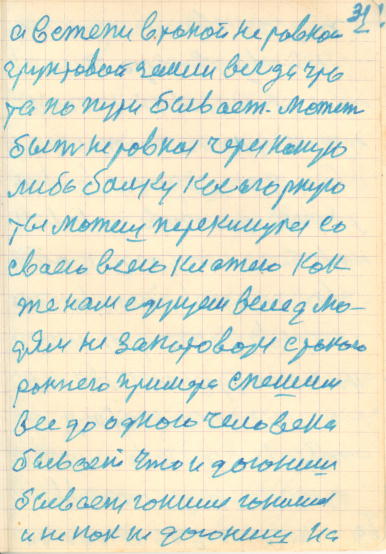 31.
а в степи в такой не ровной
грунтовой земли всегда что
та по пути бывает. может
быть не ровная через какую
либо балку косогорную
ты можеш перекинутся со
своею всею клажею как
же нам едущем вслед лю-
дям не запатовать с
раннего примера спешим
все до одного человека
бывает что и догониш
бывает гониш гониш
и не пок не догониш на